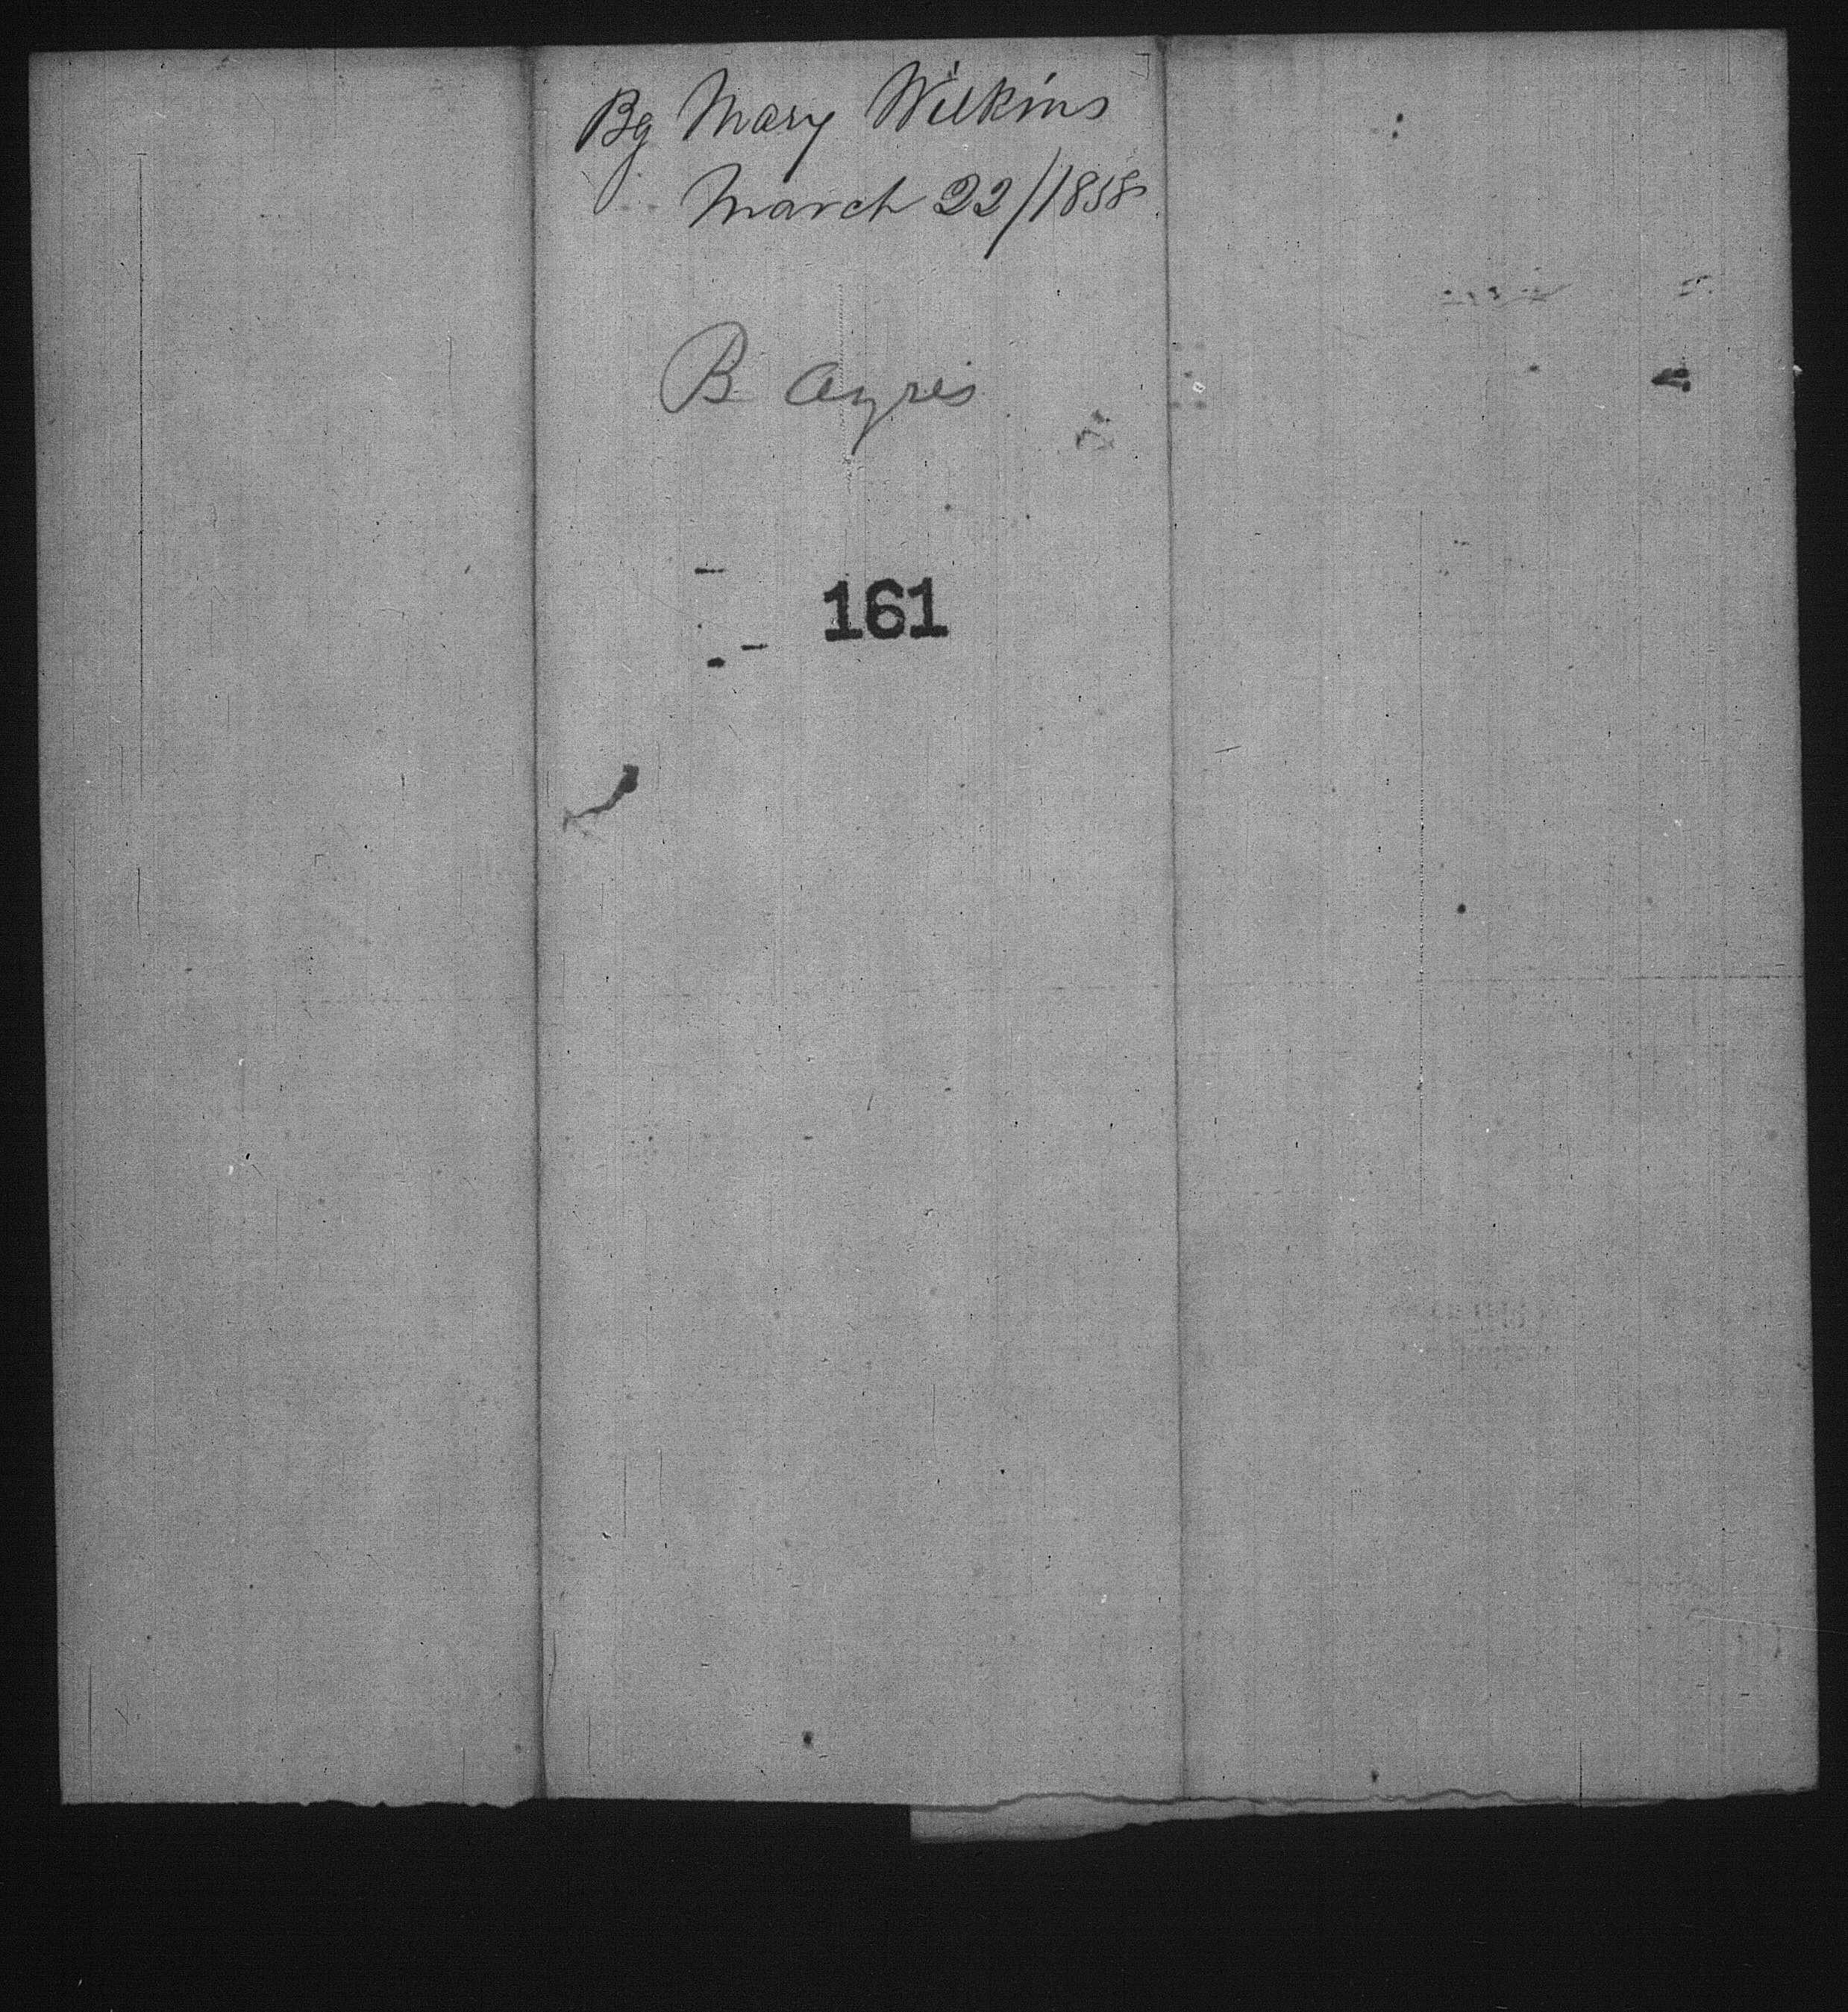 By Mary Wilkins
March 22/1858
B Ayres
161